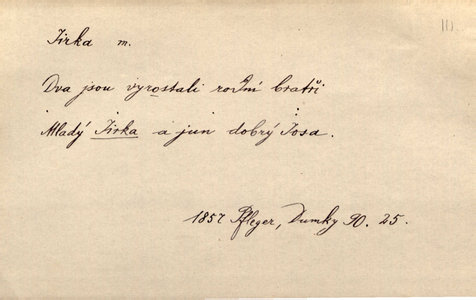 10.
Jirka m.
Dva jsou vyrostali rodní bratři
Mladý Jirka a jun dobrý Josa.
1857 Pfleger, Dumky 90. 25.